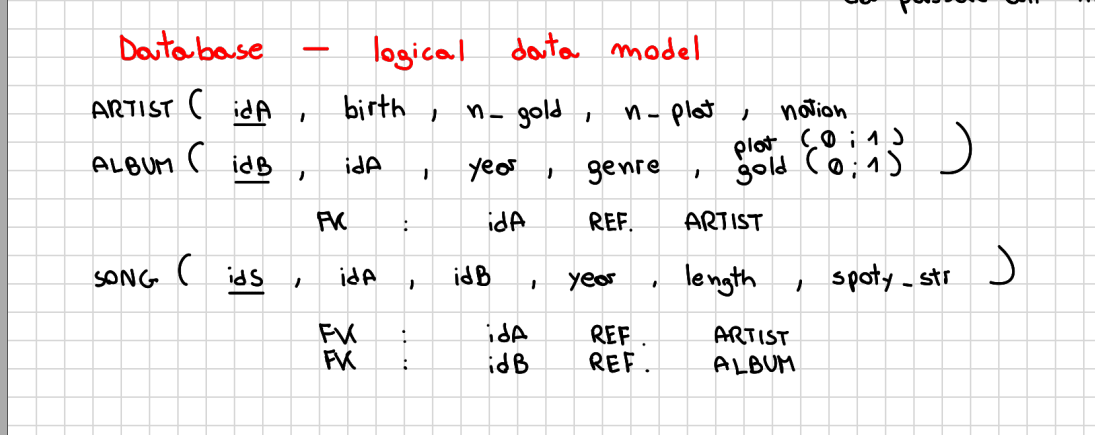 Database — logical data model
ARTIST ( idA , birth , n_gold , n_plat , nation
ALBUM ( idB , idA , year , genre , plat (0;1) gold (0;1) )
FK : idA REF. ARTIST
SONG ( idS , idA , idB , year , length , spoty_str )
FK : idA REF. ARTIST
FK : idB REF. ALBUM